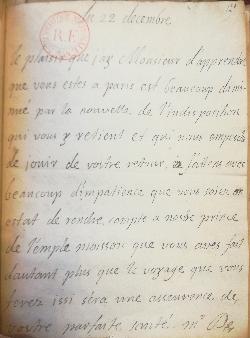 ce 22 decembre
le plaisir que j'ay Monsieur d'apprendre
que vous estes a paris est beaucoup dimi
nué par la nouvelle de l'indisposition
qui vous y retient et qui nous empesche
de jouir de vostre retour, avec
beaucoup d'impatience que vous soiez en
estat de rendre compte a nostre prince
de l'emple moisson que vous avez fait
dautant plus que le voyage que vous
ferez issi sera une assurence de
vostre parfaite santé. mr De
R.F.